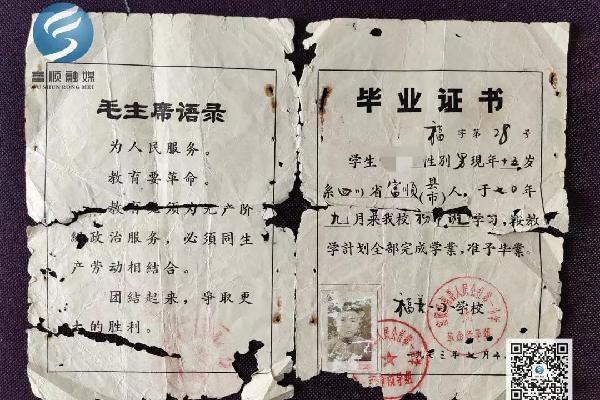 富顺融媒
FU SHUN RONG MEI
毛主席语录
为人民服务。
教育要革命。
教育必须为无产阶
级政治服务，必须同生
产劳动相结合。
团结起来，争取更
大的胜利。
毕业证书
福字第28号
学生 性别男现年十五岁
系四川省富顺(县市)人，于七〇年
九月来我校初中班学习，按教
学计划全部完成学业，准予毕业。
小学校
一九七三年 月4